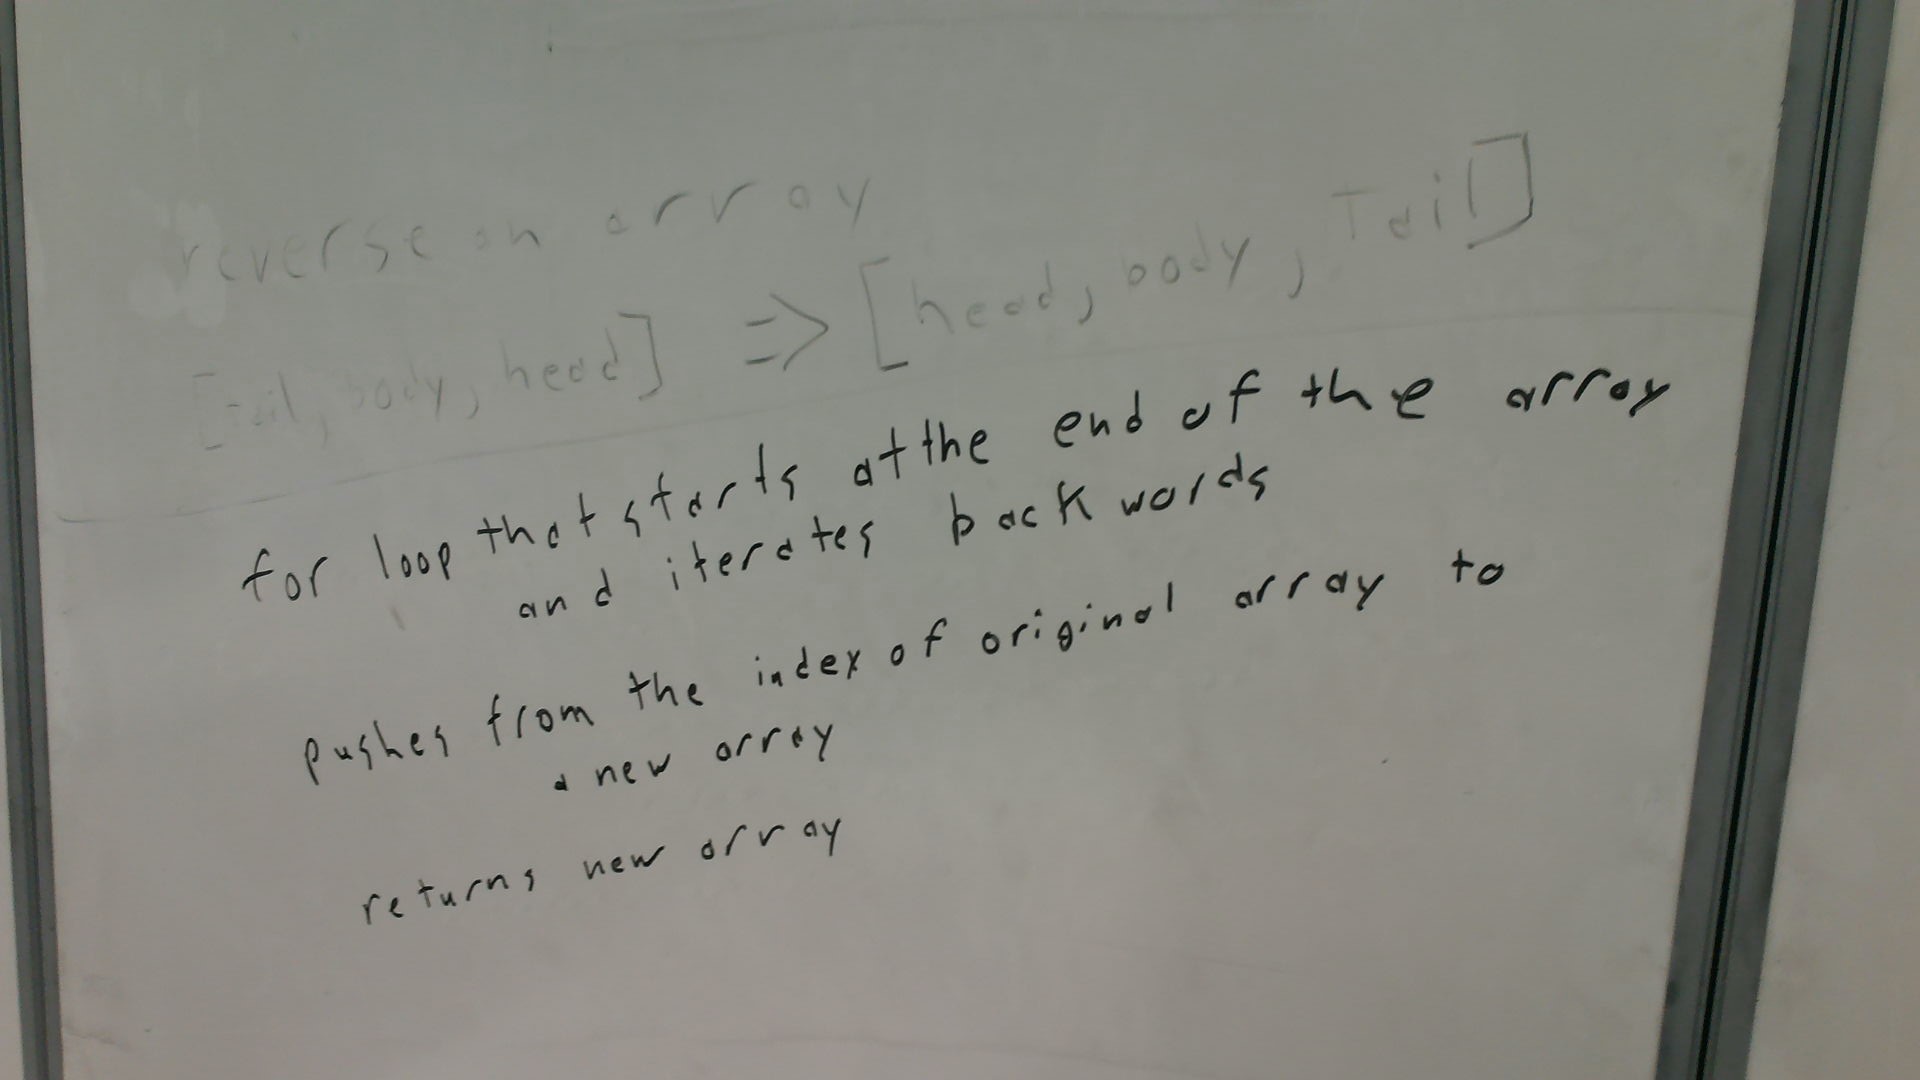 reverse an array
[tail, body, head] => [head, body, Tail]
for loop that starts at the end of the array
and iterates backwords
pushes from the index of original array to
a new array
returns new array